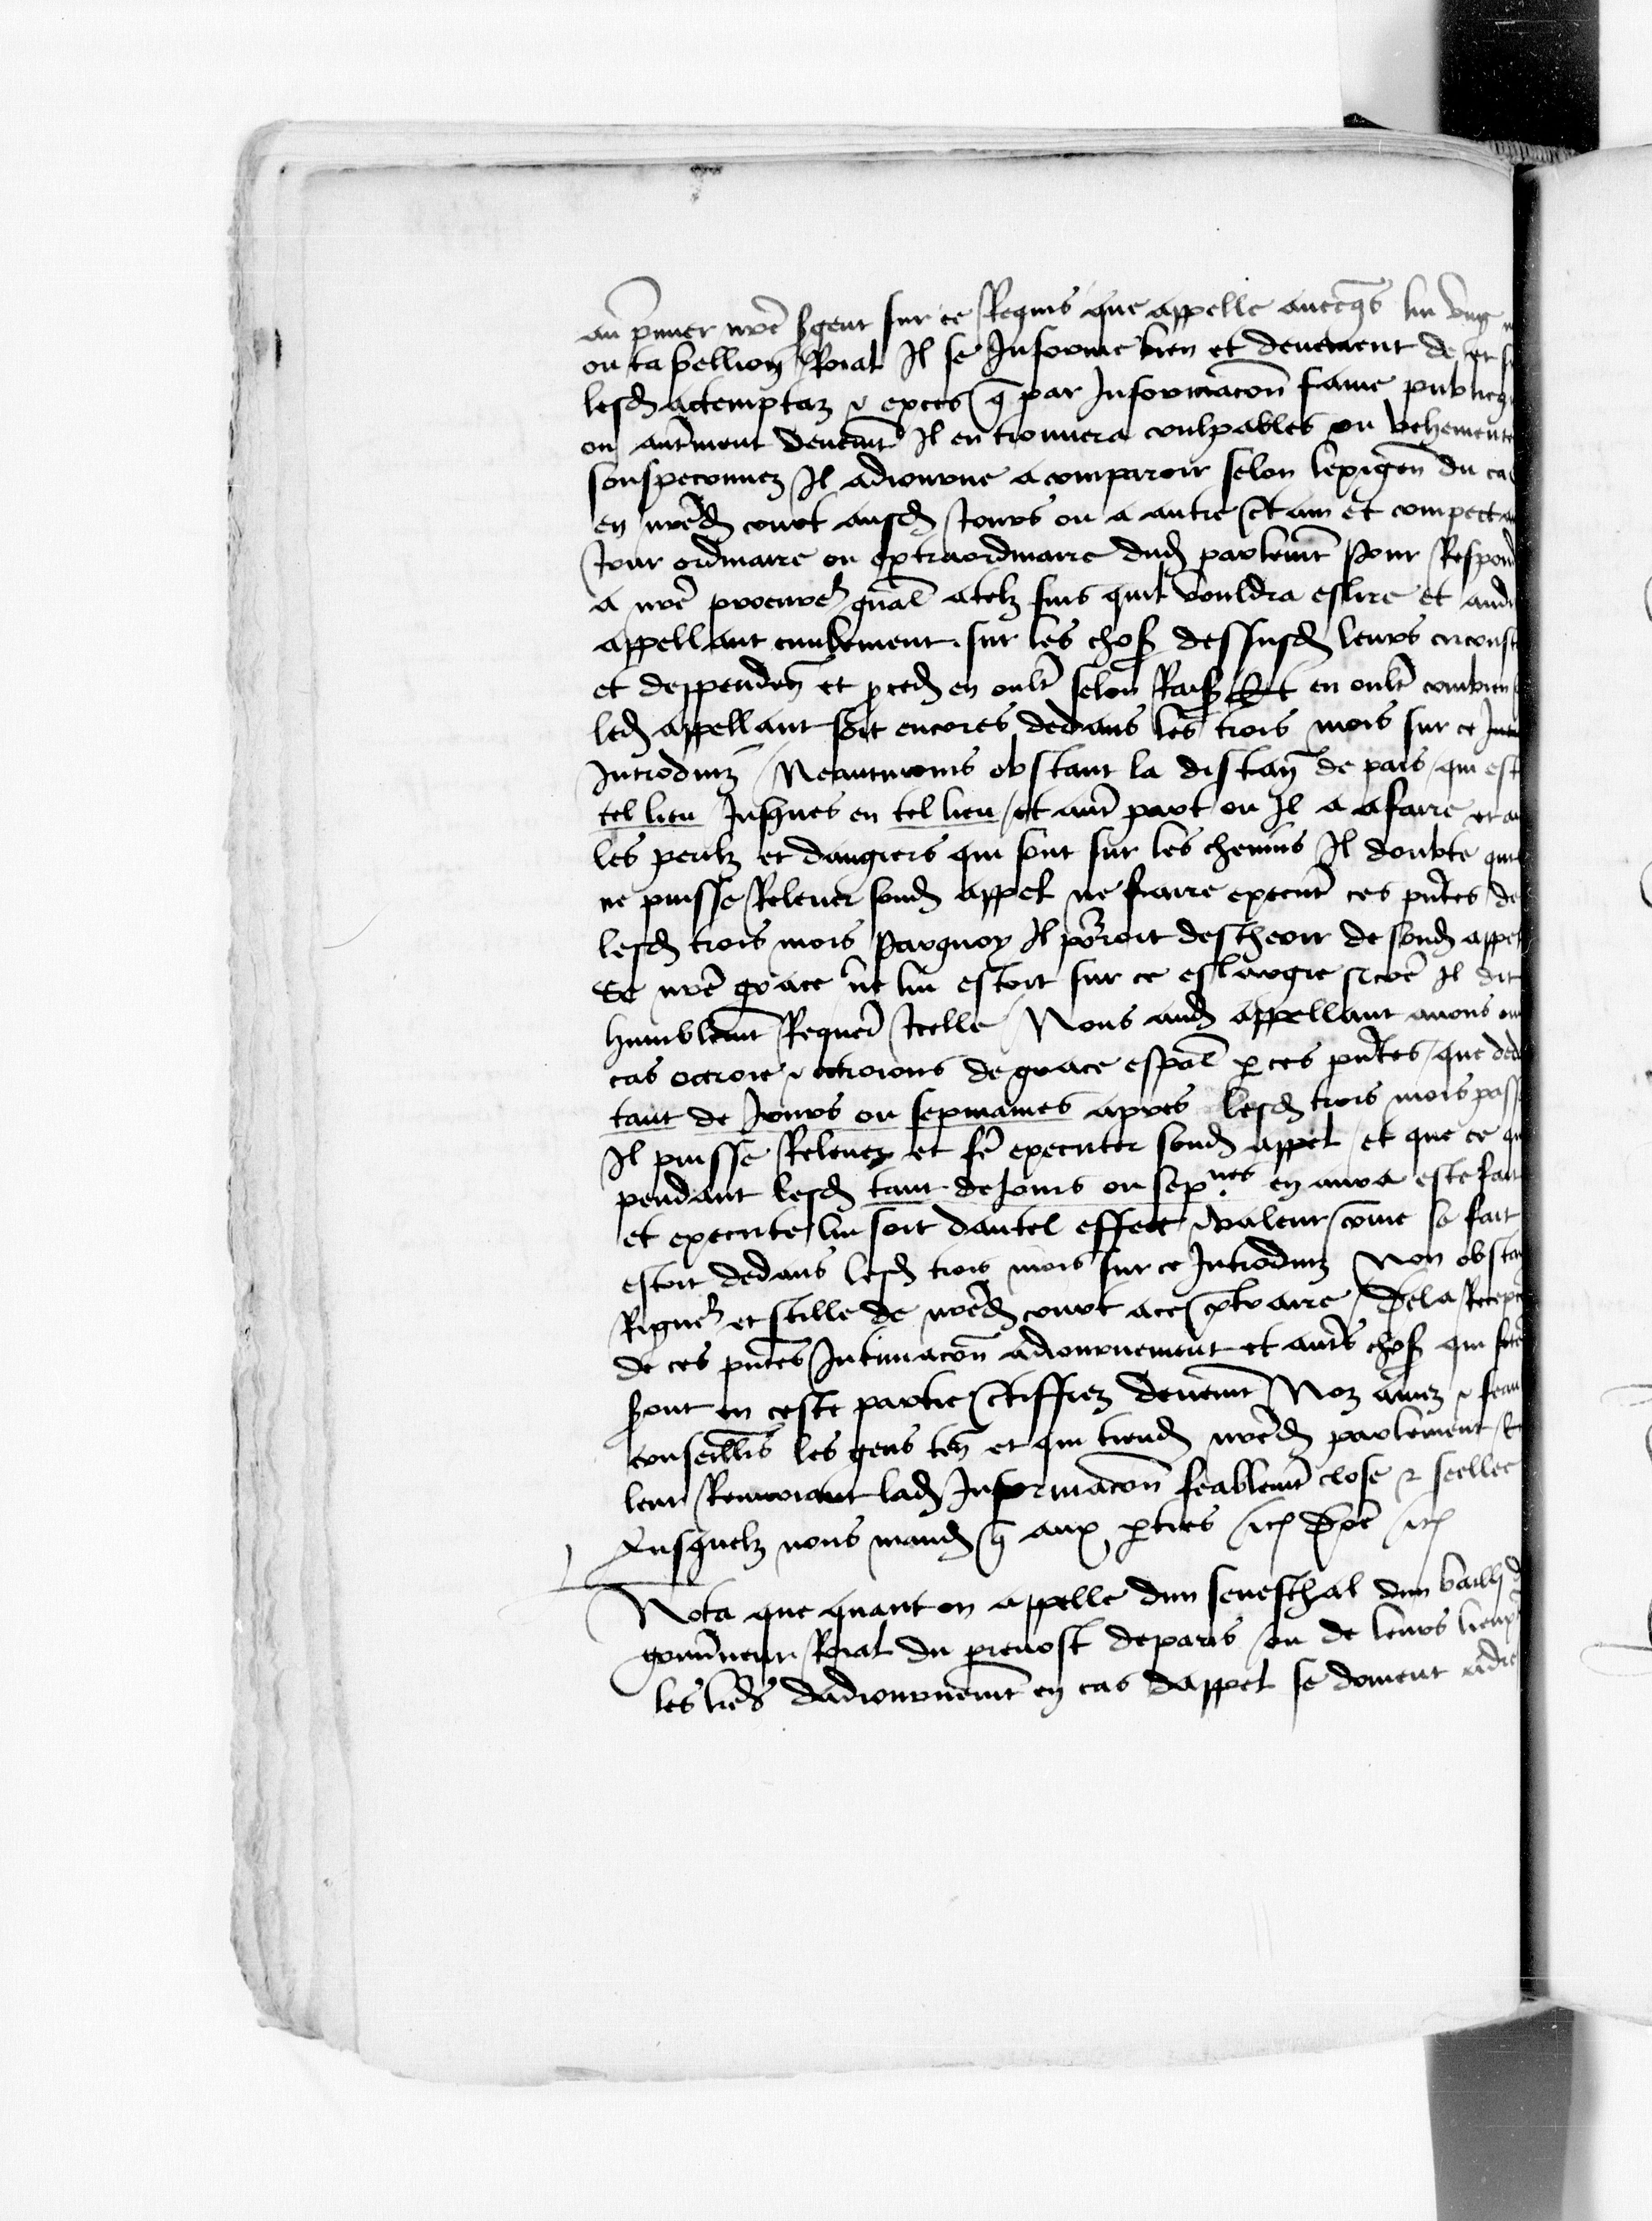 au pmier nre sgent sur ce Requis que appelle auecqs lui vng
ou tabellion Roial Il se Informe bien et deuement de et
lesd attemptaz & exces q par Informacon fame publiq
ou autment deuemt Il en trouuera coulpables ou vehemente
souspeconnez Il adiourne a comparoir selon lexigen du cas
en nred court ausd Jours ou a autre ctain et compett
Jour ordinaire ou extraordinaire dud parlemt pour Respond
a nre procurer gnal a telz fins quil vouldra eslire et aud
appellant ciuilement sur les chos dessusd leurs circonst
et deppenden et pced en oult selon Rais Et en oult combien
led appellant soit encores dedans les trois mois sur ce
Introduiz Neantmoins obstant la distan de pais qui est
tel lieu Jusques en tel lieu et aut part ou Il a afaire et
les perilz et dangiers qui sont sur les chemins Il doubte quil
ne puisse Releuer sond appel ne faire execut ces pntes de
lesd trois mois Parquoy Il porroit descheoir de sond appel
Se nre grace ne lui estoit sur ce eslargie sicoe Il dit
humblemt Requer Icelle Nous aud appellant auons ou
cas octroie & octroions de grace espal p ces pntes que ded
tant de Jours ou sepmaines apres lesd trois mois pass
Il puisse Releuer et fe executer sond appel et que ce qu
pendant lesd tant de Jours ou sepnes en aura este fait
et execute lui soit dautel effect & valeur come se fait
estoit dedans lesd trois mois sur ce Introduiz Non obstan
Riguer et stille de nred court a ce ctraire De la Recepc
de ces pntes Intimacon adiournement et auts chos qui fcte
sont en ceste partie ctiffiez deuemt Noz amez & feau
conseillrs les gens ten et qui tiend nred parlement Et
leur Renuoiant lad Informacon feablemt close & seellee
Ausquelz nous mand q aux pties etc Done etc
Nota que quant on appelle dun seneschal dun bailli d
gouuneur Roial du preuost de paris ou de leurs lieux
les lres dadiournemt en cas dappel se doiuent adre